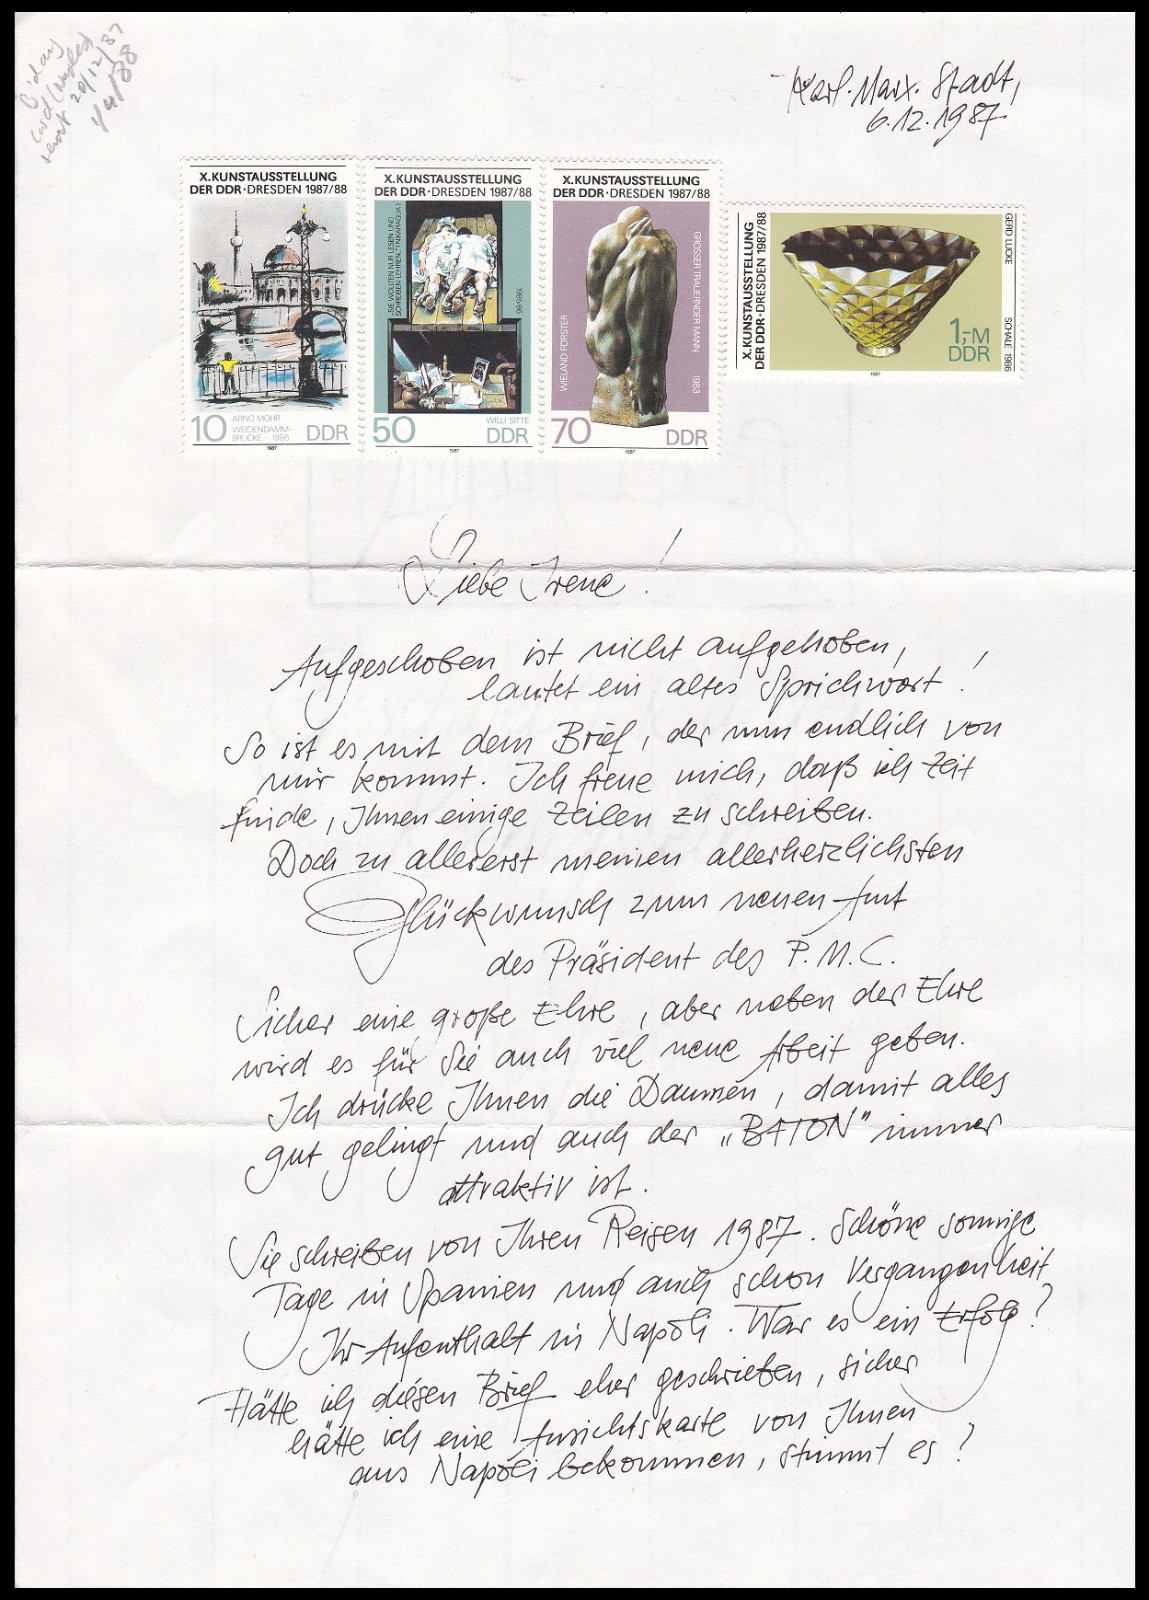 card (
sent 20/12/87
1/4/88
Karl-Marx-Stadt,
6.12.1987
X.KUNSTAUSSTELLUNG
DER DDR·DRESDEN 1987/88
10
ARNO MOHR
WEIDENDAMM-
BRÜCKE 1986
DDR
1987
X.KUNSTAUSSTELLUNG
DER DDR·DRESDEN 1987/88
„SIE WOLLTEN NUR LESEN UND
SCHREIBEN LEHREN." (NIKARAGUA)
1985/86
50
WILLI SITTE
DDR
1987
X.KUNSTAUSSTELLUNG
DER DDR·DRESDEN 1987/88
WIELAND FÖRSTER
GROSSER TRAUERNDER MANN 1983
70
DDR
1987
X.KUNSTAUSSTELLUNG
DER DDR·DRESDEN 1987/88
GERD LUCKE SCHALE 1986
1,-M
DDR
1987
Liebe Irene!
Aufgeschoben ist nicht aufgehoben,
lautet ein altes Sprichwort!
So ist es mit dem Brief, der nun endlich von
mir kommt. Ich freue mich, daß ich Zeit
finde, Ihnen einige Zeilen zu schreiben.
Doch zu allererst meinen allerherzlichsten
Glückwunsch zum neuen Amt
des Präsident des P.M.C.
Sicher eine große Ehre, aber neben der Ehre
wird es für Sie auch viel neue Arbeit geben.
Ich drücke Ihnen die Daumen, damit alles
gut gelingt und auch der „BATON" immer
attraktiv ist.
Sie schreiben von Ihren Reisen 1987. Schöne sonnige
Tage in Spanien und auch schon Vergangenheit
Ihr Aufenthalt in Napoli. War es ein Erfolg?
Hätte ich diesen Brief eher geschrieben, sicher
hätte ich eine Ansichtskarte von Ihnen
aus Napoli bekommen, stimmt es?